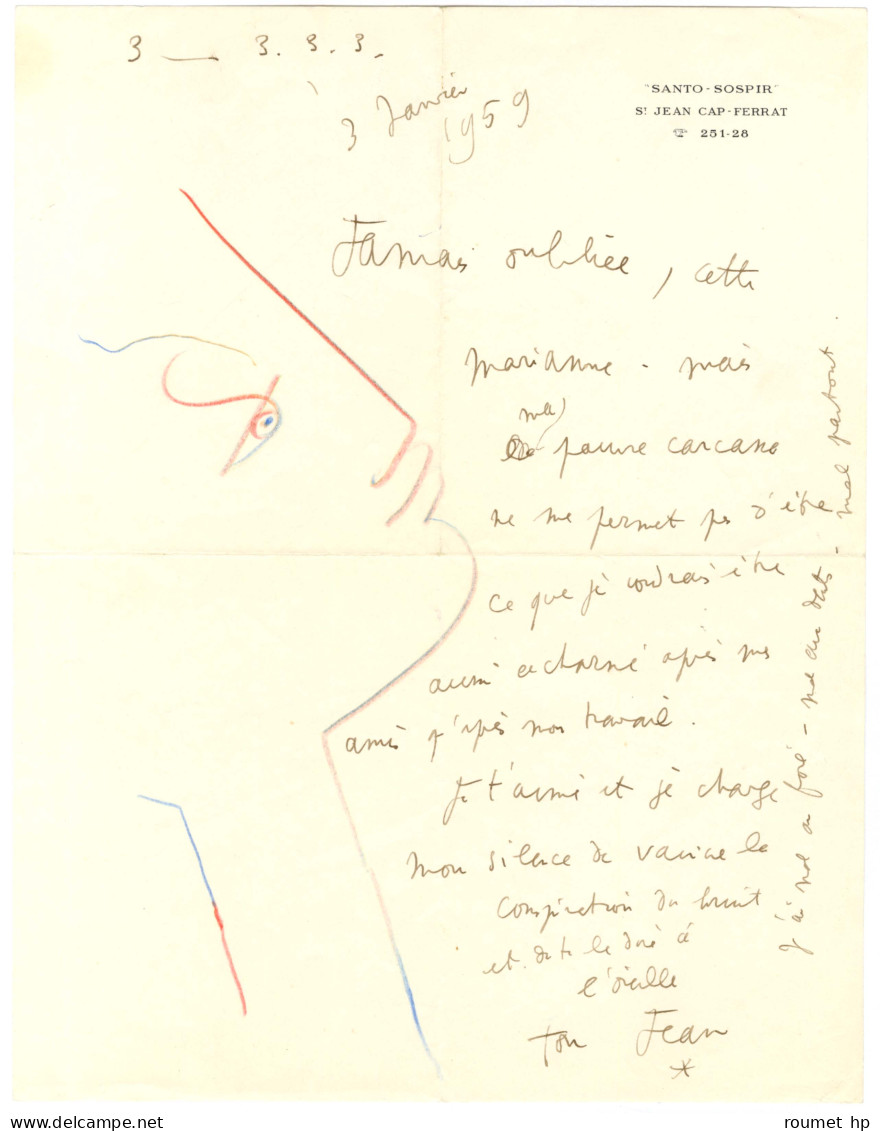 3 — 3. 3. 3.
3 Janvier
1959
"SANTO-SOSPIR"
St JEAN CAP-FERRAT
☎ 251-28
Jamais oubliée, cette
marianne - mais
ma
pauvre carcasse
ne me permet pas d'être
ce que je voudrais être
aussi acharné après mes
amis qu'après mon travail.
Je t'aime et je charge
mon silence de vaincre la
conspiration du bruit
et de te le dire à
l'oreille
ton Jean
*
j'ai mal au foie - mal au dos - mal partout.
roumet hp